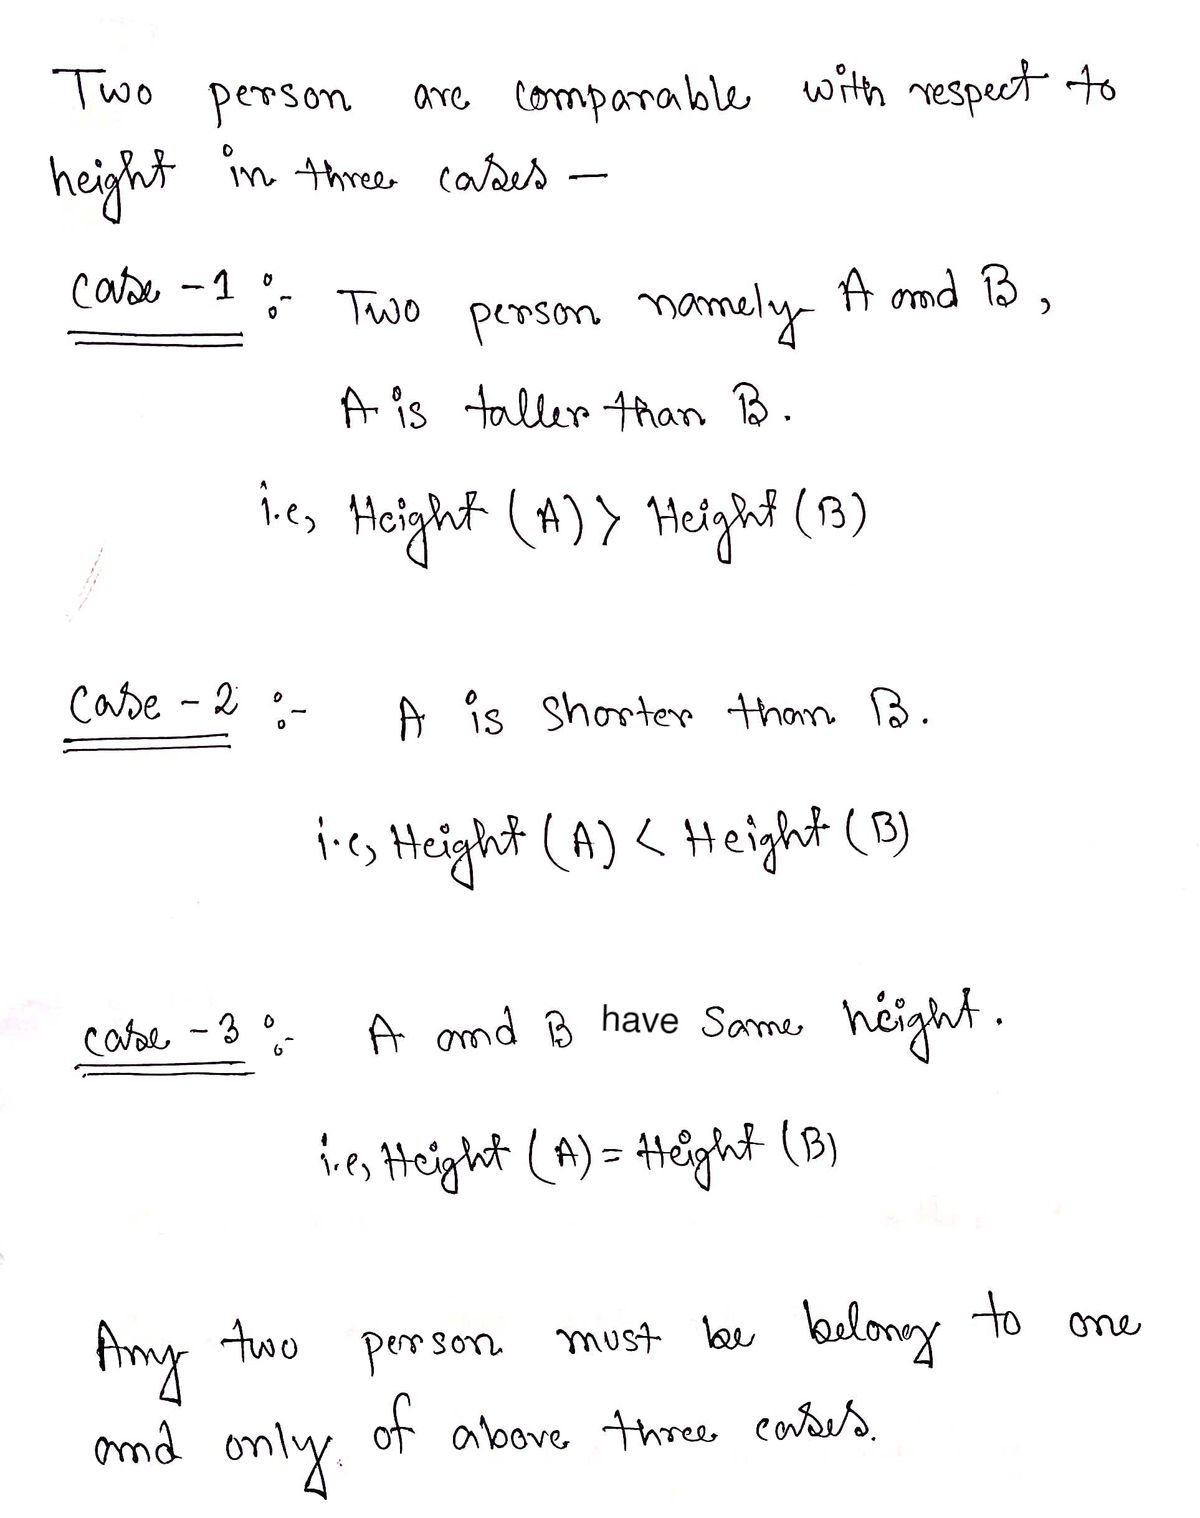 Two person are comparable with respect to
height in three cases —
case - 1 :- Two person namely A and B,
A is taller than B.
i.e, Height (A) > Height (B)
case - 2 :- A is shorter than B.
i.e, Height (A) < Height (B)
case - 3 :- A and B have same height.
i.e, Height (A) = Height (B)
Any two person must be belong to one
and only of above three cases.